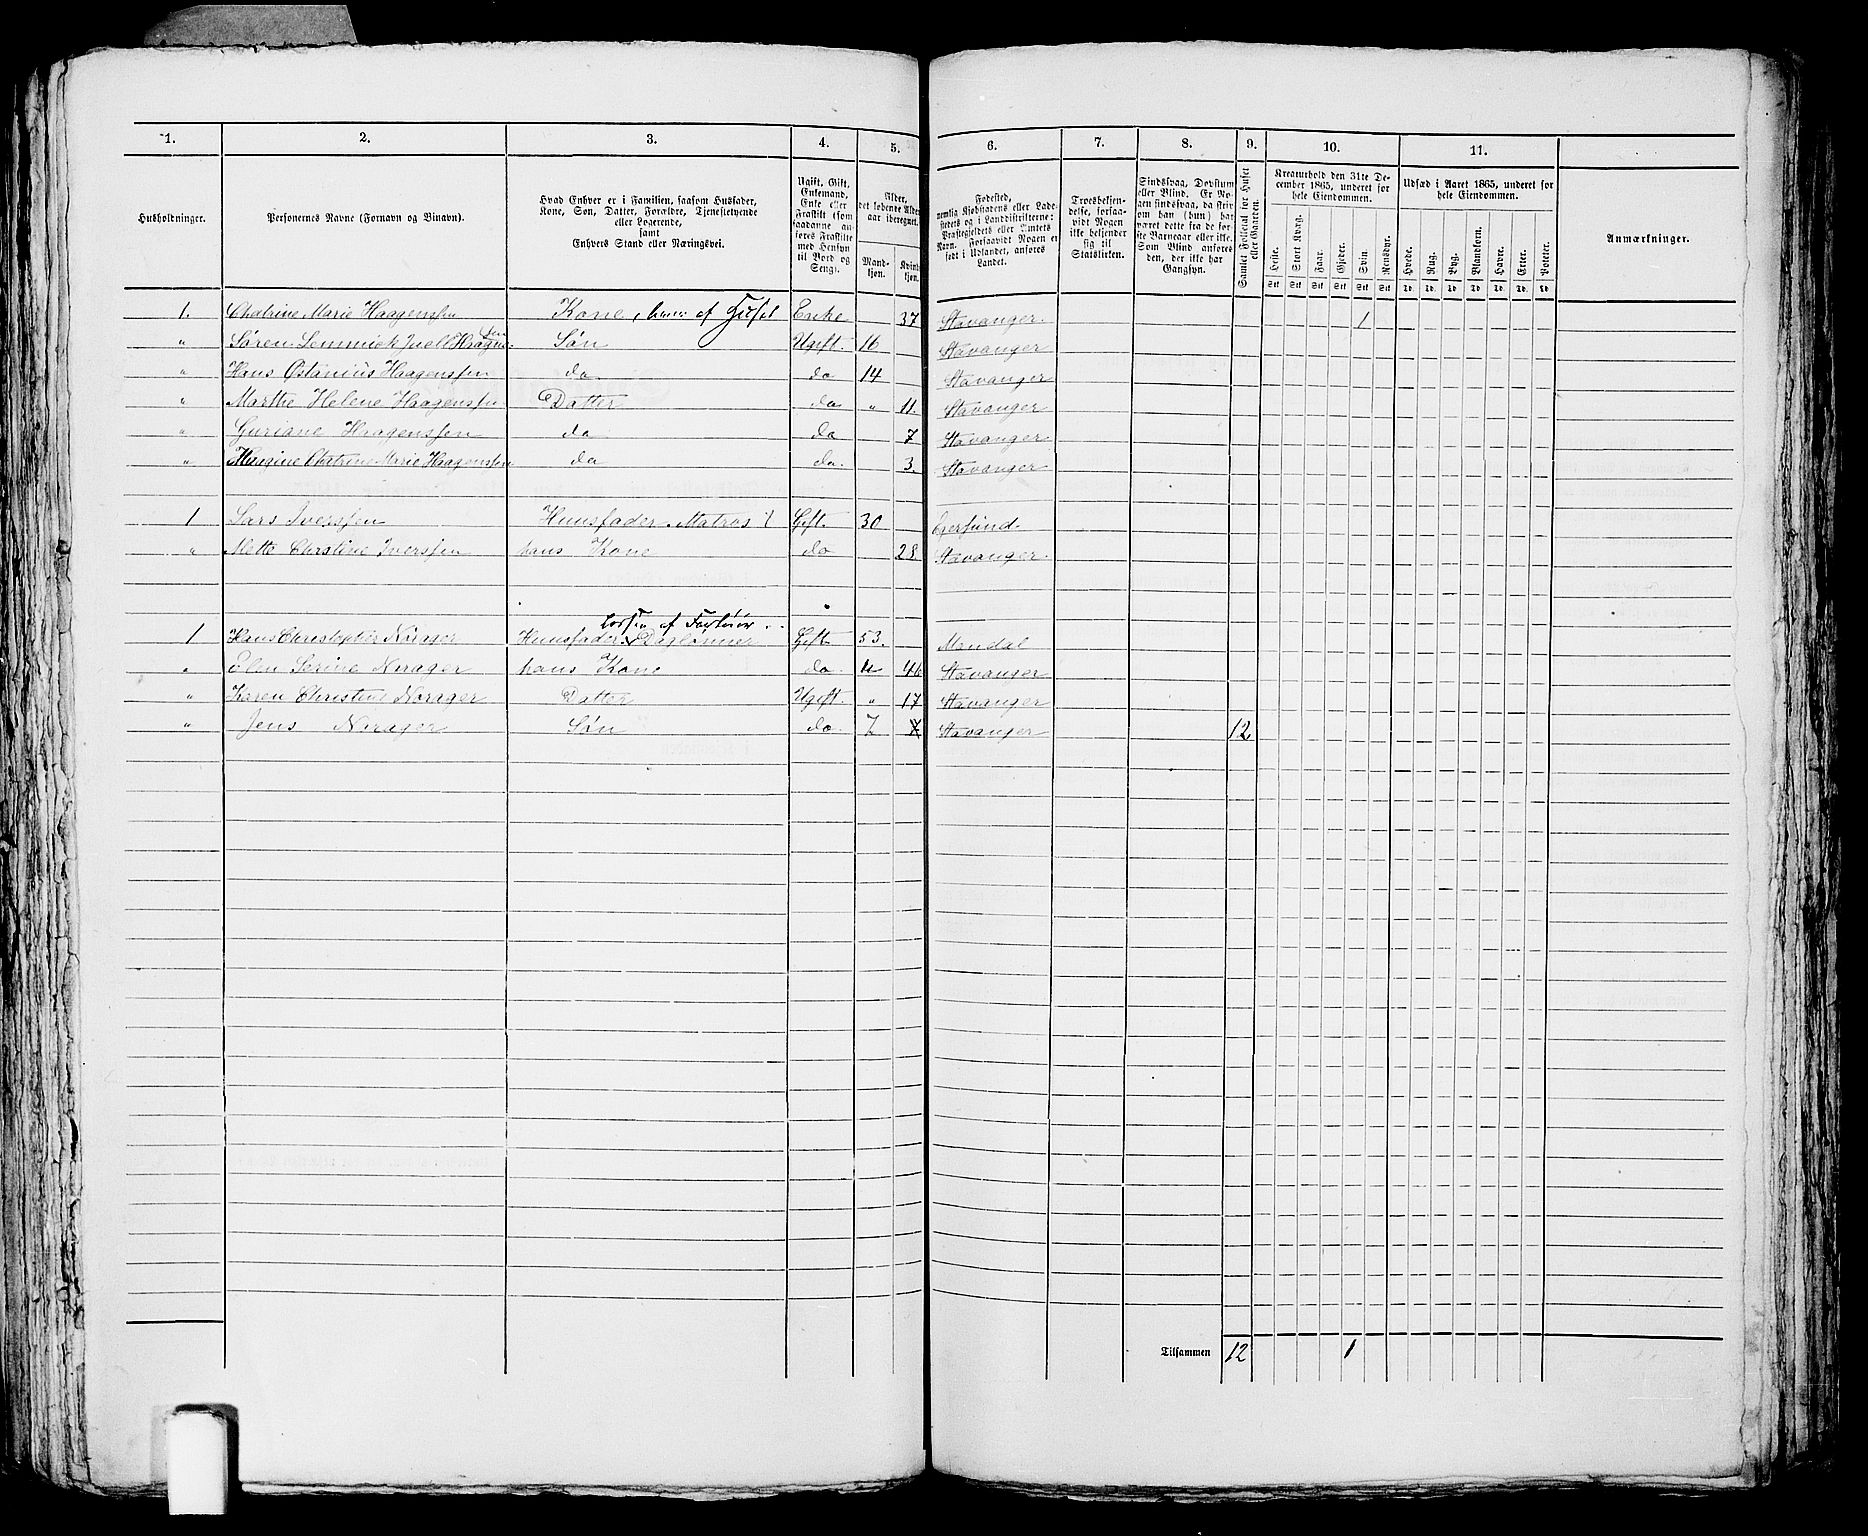 1. 2. 3. 4. 5. 6. 7. 8. 9. 10. 11.
Husholdninger.
Personernes Navne (Fornavn og Binavn).
Hvad Enhver er i Familien, saasom Husfader,
Kone, Søn, Datter, Forældre, Tjenestetyende
eller Logerende,
samt
Enhvers Stand eller Næringsvei.
Ugift, Gift,
Enkemand,
Enke eller
Fraskilt (som
saadanne an-
føres Fraskilte
med Hensyn
til Bord og
Seng).
Alder,
det løbende Alders-
aar iberegnet.
Mand-
kjøn.
Kvinde-
kjøn.
Fødested,
nemlig Kjøbstadens eller Lade-
stedets og i Landdistrikterne:
Præstegjeldets eller Amtets
Navn. Forsaavidt Nogen er
født i Udlandet, anføres
Landet.
Troesbekjen-
delse, forsaa-
vidt Nogen
ikke bekjender
sig til
Statskirken.
Sindssvag, Døvstum
eller Blind. Er No-
gen sindssvag, da skri-
ves, om han (hun) har
været dette fra de før-
ste Barneaar eller ikke.
Som Blind anføres
den, der ikke har
Gangsyn.
Samlet Folketal for Huset
eller Gaarden.
Kreaturhold den 31te De-
cember 1865, underet for
hele Eiendommen.
Heste. Stort Kvæg. Faar. Gjeder. Svin. Rensdyr.
Stk Stk Stk Stk Stk Stk
Udsæd i Aaret 1865, underet for
hele Eiendommen.
Hvede. Rug. Byg. Blandkorn. Havre. Erter. Poteter.
Td. Td. Td. Td. Td. Td. Td.
Anmærkninger.
1. Chatrine Marie Haagenssen Kone, Enke 37 Stavanger. 1
" Søren Lemmick Juell Haagenssen Søn Ugift. 16 Stavanger
" Hans Østanius Haagenssen do do 14 Stavanger
" Marthe Helene Haagenssen Datter do " 11. Stavanger
" Guriane Haagenssen do do 7 Stavanger
" Chatrine Marie Haagenssen do do. 3. Stavanger
1 Lars Iverssen Huusfader Matros Gift. 30 Egersund.
" Mette Christine Iverssen hans Kone do 28. Stavanger.
af
1 Hans Christopher Norager Huusfader Daglønner Gift 53. Mandal
" Elen Serine Norager hans Kone do " 46 Stavanger
" Karen Christine Norager Datter Ugift. " 17 Stavanger
" Jens Norager Søn do. 7 Stavanger 12
Tilsammen 12 1